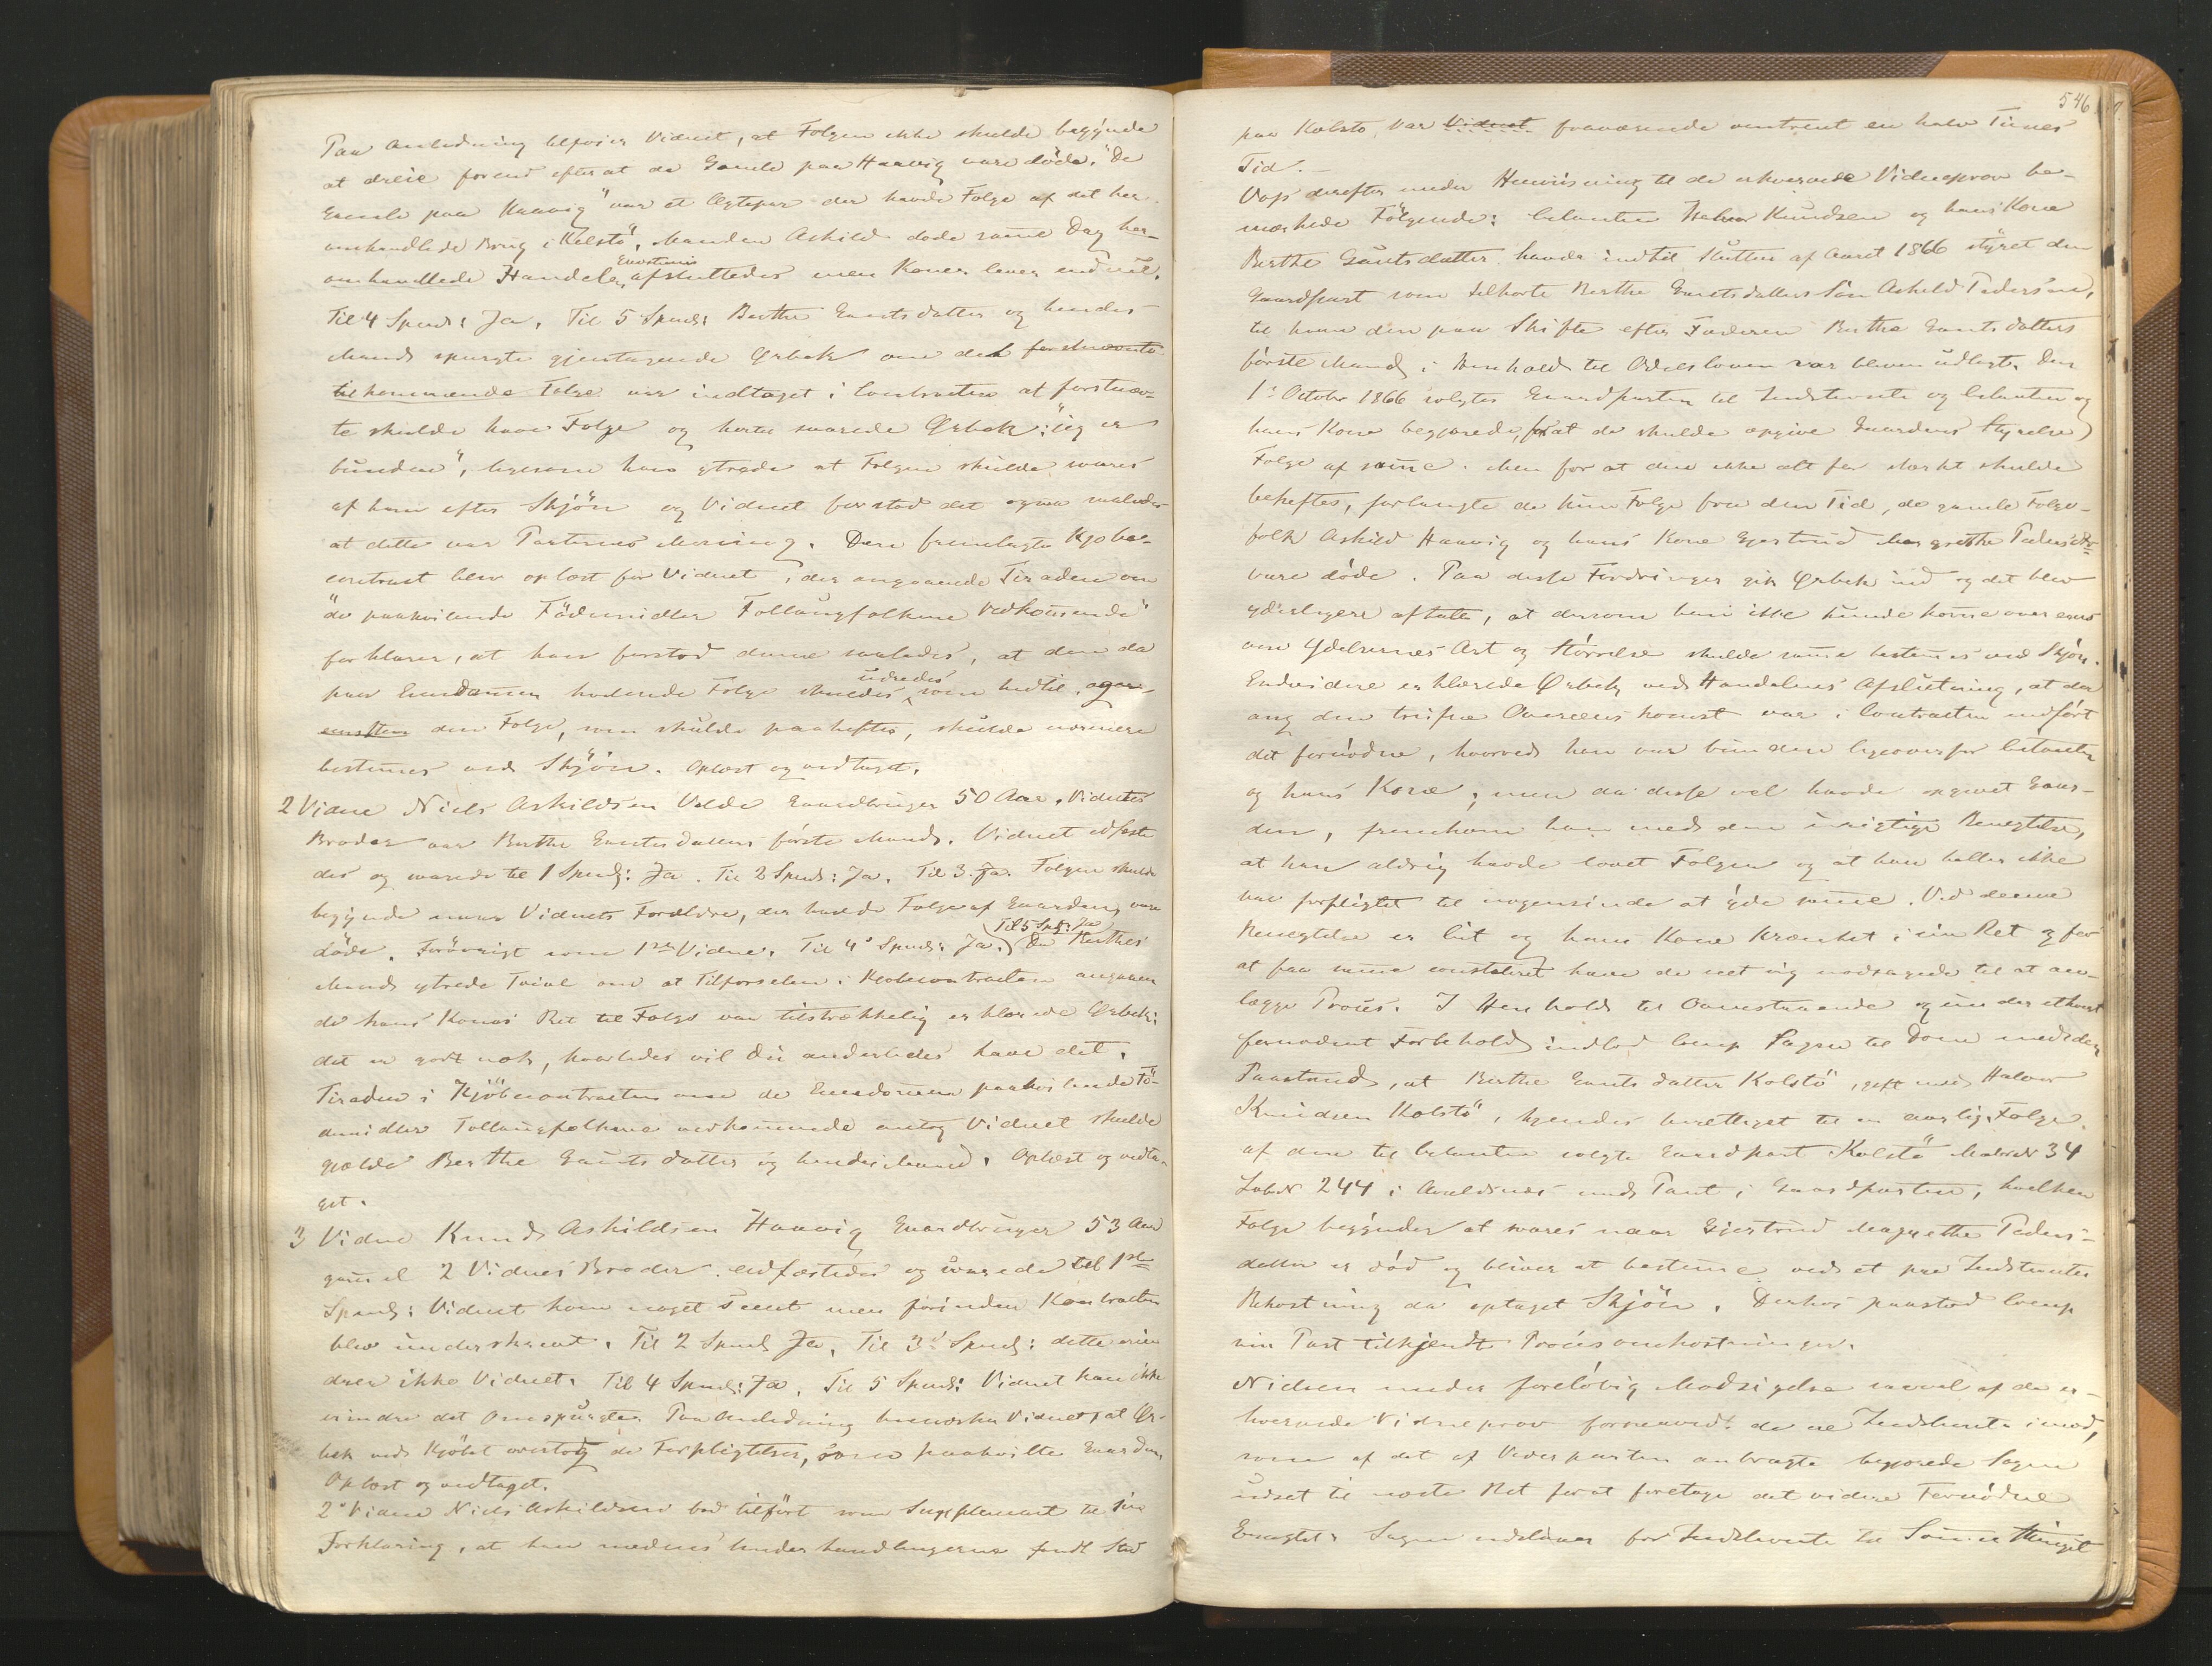 Paa Anledning tilføier Vidnet, at Følgen ikke skulde begynde
at dreie forend efter at de Gamle paa Haavig vare døde. "De
Gamle paa Haavig" var et Ægtepar der havde Følge af det her
omhandlede Brug i Kolstø. Manden Askild døde samme Dag her-
omhandlede Handels afsluttedes men Konen lever endnu.
Til 4 Spmd: Ja. Til 5 Spmd: Berthe Gautsdatter og hendes
Mand spurgte gjentagende Ørbek om det forstnævnte
tilkommende Følge var indtaget i Contracten at førstnævn-
te skulde have Følge og hertil svarede Ørbek: "jeg er
bunden", ligesom han ytrede at Følgen skulde svares
af ham efter Skjön og Vidnet forstod det ogsaa saaledes
at dette var Parternes Mening. Den fremlagte Kjøbe-
contract blev oplæst for Vidnet, der angaaende Tiraden om
"de paahvilende Födemidler Follaugfolkene Vedkommende"
forklarer, at han forstod denne saaledes, at den da
paa Eiendommen heftende Følge skulde udredes som hidtil,
den Følge, som skulde paaheftes, skulde nærmere
bestemmes ved Skjön. Oplæst og vedtaget.
2 Vidne Niels Askildsen Velde Gaardbruger 50 Aar. Vidnets
Broder var Berthe Gautsdatters første Mand. Vidnet edfæste
des og svarede til 1 Spmd: Ja. Til 2 Spmd: Ja. Til 3. Ja. Følgen skulde
begynde naar Vidnets Forældre, der havde Følge af Gaarden, vare
døde. Forövrigt som 1ste Vidne. Til 4de Spmd: Ja. (Til 5 Spd: Ja) Da Berthes
Mand ytrede Tvivl om at Tilførselen i Kjøbecontracten angaaen
de hans Kones Ret til Følge var tilstrækkelig erklærede Ørbek:
det er godt nok, hvorledes vil du anderledes have det.
Tiraden i Kjöbecontracten om de Eiendommen paahvilende Fö-
demidler Follaugfolkene vedkommende antog Vidnet skulde
gjælde Berthe Gautsdatter og hendes Mand. Oplæst og vedta-
get.
3 Vidne Knud Askildsen Haavig Gaardbruger 53 Aar
gammel 2 Vidnes Broder. edfæstedes og svarede til 1ste
Spmd: Vidnet kom noget seent men förinden Kontracten
blev underskrevet. Til 2 Spmd Ja, Til 3de Spmd: dette erin
drer ikke Vidnet. Til 4 Spmd: Ja. Til 5 Spmd: Vidnet kan ikke
erindre det Omspurgte. Paa Anledning bemærker Vidnet, at Ør-
bek ved Kjöbet overtog de Forpligtelser, som paahvilte Gaarden
Oplæst og vedtaget.
2de Vidne Niels Askildsen bad tilført som Supplement til sin
Forklaring, at han medens Underhandlingerne fandt Sted
546
paa Kolstø, var Vidnet fraværende omtrent en halv Times
Tid.
Vogt derefter under Henvisning til de erhvervede Vidneprov be-
mærkede Følgende: Citanten Halvor Knudsen og hans Kone
Berthe Gautsdatter havde indtil Slutten af Aaret 1866 styret den
Gaardpart som tilhørte Berthe Gautsdatters Søn Askild Pedersen,
til hvem den paa Skifte efter Faderen Berthe Gautsdatters
første Mand i Henhold til Odelsloven var bleven udlagt. Den
1ste October 1866 solgtes Gaardparten til Indstevnte og Citanten og
hans Kone begjærede, for at de skulde opgive Gaardens Styrelse)
Følge af samme. Men for at den ikke alt for stærkt skulde
beheftes, forlangte de kun Følge fra den Tid, de gamle Følge-
folk Askild Haavig og hans Kone Gjertrud Margrethe Pedersdtr
vare døde. Paa disse Fordringer gik Ørbek ind og det blev
yderligere aftalt, at dersom man ikke kunde komme overeens
om Ydelsernes Art og Størrelse skulde samme bestemmes ved Skjön.
Endvidere erklærede Ørbek ved Handelens Afslutning, at der
ang den trufne Overeenskomst var i Contracten indført
det fornødne, hvorved han var bunden ligeoverfor Citanten
og hans Kone; men da disse vel havde opgivet Gaar-
den, fremkom han med den urigtige Benegtelse,
at han aldrig havde lovet Følgen og at han heller ikke
var forpligtet til nogensinde at yde samme. Ved denne
Benegtelse er Cit og hans Kone krænket i sin Ret og for
at faa samme constateret have de seet sig nødsagede til at an-
lægge Proces. I Henhold til Ovenstaaende og under ethvert
fornødent Forbehold indlod Comp Sagen til Dom med den
Paastand, at Berthe Gautsdatter Kolstö, gift med Halvor
Knudsen Kolstö, kjendes berettiget til en aarlig Følge
af den til Citanten solgte Gaardpart Kolstö MatrN 34
LøbN 244 i Avaldsnæs med Pant i Gaardparten, hvilken
Følge begynder at svares naar Gjertrud Magrethe Peders-
datter er død og bliver at bestemme ved et paa Indstevntes
Bekostning da optaget Skjön. Derhos paastod Comp
sin Part tilkjendt Procesomkostninger.
Nielsen under foreløbig Modsigelse saavel af de er-
hvervede Vidneprov forsaavidt de ere Indstevnte imod,
som af det af Vederparten anbragte begjærede Sagen
udsat til næste Ret for at foretage det videre Fornødne
Eragtet: Sagen udsættes for Indstevnte til Sommerthinget